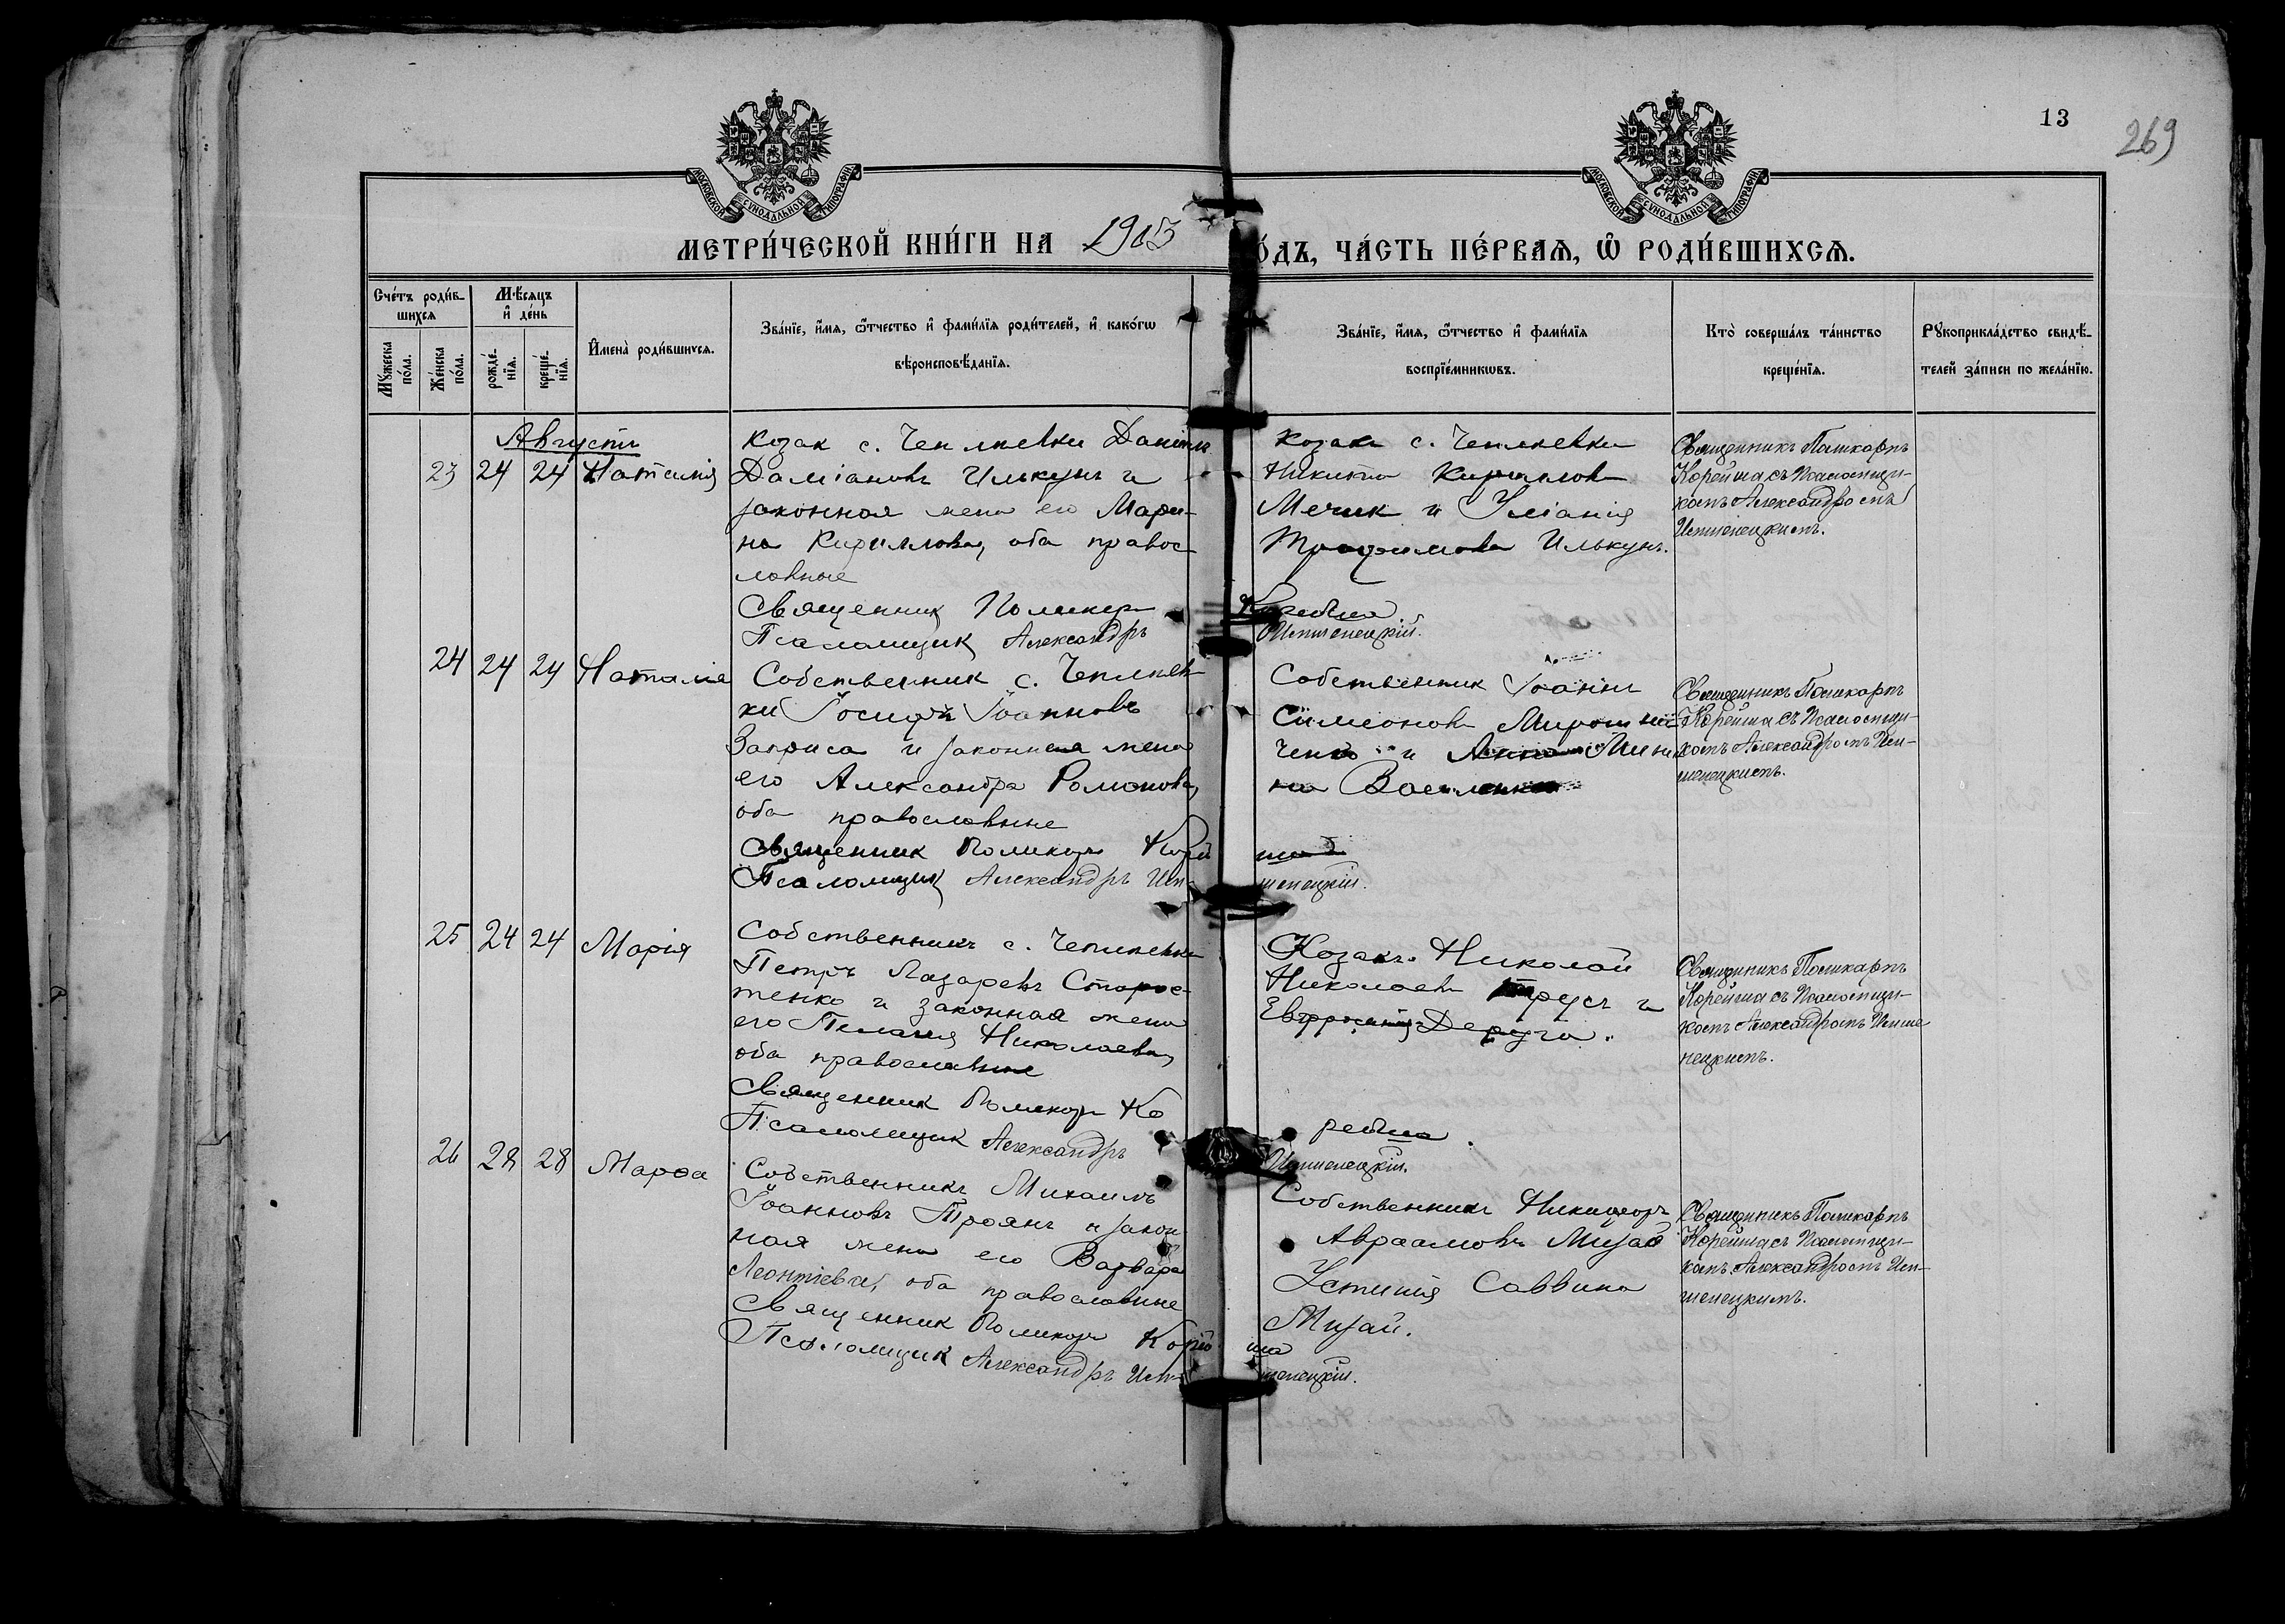 МОСКОВСКОЙ СѴНОДАЛЬНОЙ ТИПОГРАФІИ
МОСКОВСКОЙ СѴНОДАЛЬНОЙ ТИПОГРАФІИ
13
269
МЕТРИ́ЧЕСКОЙ КНИ́ГИ НА 1903
О́ДЪ, ЧА́СТЬ ПЕ́РВАѦ, Ѡ҆ РОДИ́ВШИХСѦ.
Сче́тъ роди́в-
шихсѧ
Мꙋ́жеска по́ла.
Же́нска по́ла.
Мѣ́сѧцъ
и҆ де́нь
рожде́-
нїѧ.
креще́-
нїѧ.
И҆мена̀ роди́вшихсѧ.
Зва́нїе, и҆́мѧ, ѻ҆́тчество и҆ фами́лїѧ роди́телей, и҆ како́гѡ
вѣроисповѣ́данїѧ.
Зва́нїе, и҆́мѧ, ѻ҆́тчество и҆ фами́лїѧ
воспрїе́мникѡвъ.
Кто̀ соверша́лъ та́инство
креще́нїѧ.
Рꙋкоприкла́дство свидѣ́-
телей за́писи по жела́нїю.
Августъ
23 24 24 Наталія
Козак с. Чепиневки Даніилъ
Даміановъ Илькунъ и
законная жена его Мари-
на Кириллова, оба правос
лавные
Священник Поликарп Корейша
Псаломщик Александръ Ишменецкій.
Козак с. Чепиневки
Никита Кириллов
Мечик и Уліанія
Трофимова Илькунъ.
Священникъ Поликарпъ
Корейша съ Псаломщи-
комъ Александромъ
Ишменецкимъ.
24 24 24 Наталія
Собственник с. Чепинев
ки Іосифъ Іоанновъ
и законная жена
его Александра Романова,
оба православные
Священник Поликарп Корей ша
Псаломщик Александръ Иш- менецкій.
Собственник Іоаннъ
Симеонов Мирошни
ченко и
на
Священникъ Поликарпъ
Корейша съ Псаломщи-
комъ Александромъ Иш-
менецкимъ.
25 24 24 Марія
Собственникъ с. Чепиневки
Петръ Лазаревъ Старос-
тенко и законная жена
его Пелагія Николаева,
оба православные
Священник Поликарп Ко рейша
Псаломщик Александръ Ишменецкій.
Козакъ Николай
Николаев Трусъ и
Евфросинія Деруга.
Священникъ Поликарпъ
Корейша съ Псаломщи-
комъ Александромъ Ишме
нецкимъ.
26 28 28 Марѳа
Собственникъ Михаилъ
Іоанновъ Троянъ и закон
ная жена его Варвара
Леонтіева, оба православные
Священник Поликарп Корей ша
Псаломщик Александръ Иш- менецкій.
Собственникъ Никифоръ
Авраамовъ Мизай
Устинія Саввина
Мизай.
Священникъ Поликарпъ
Корейша съ Псаломщи-
комъ Александромъ Иш-
менецкимъ.